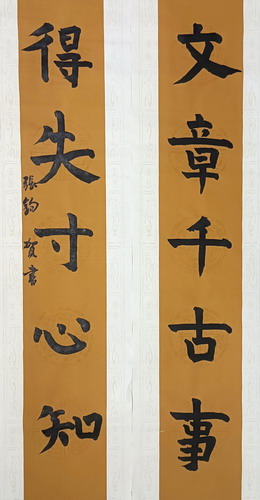 文章千古事
得失寸心知
張鈞賀書